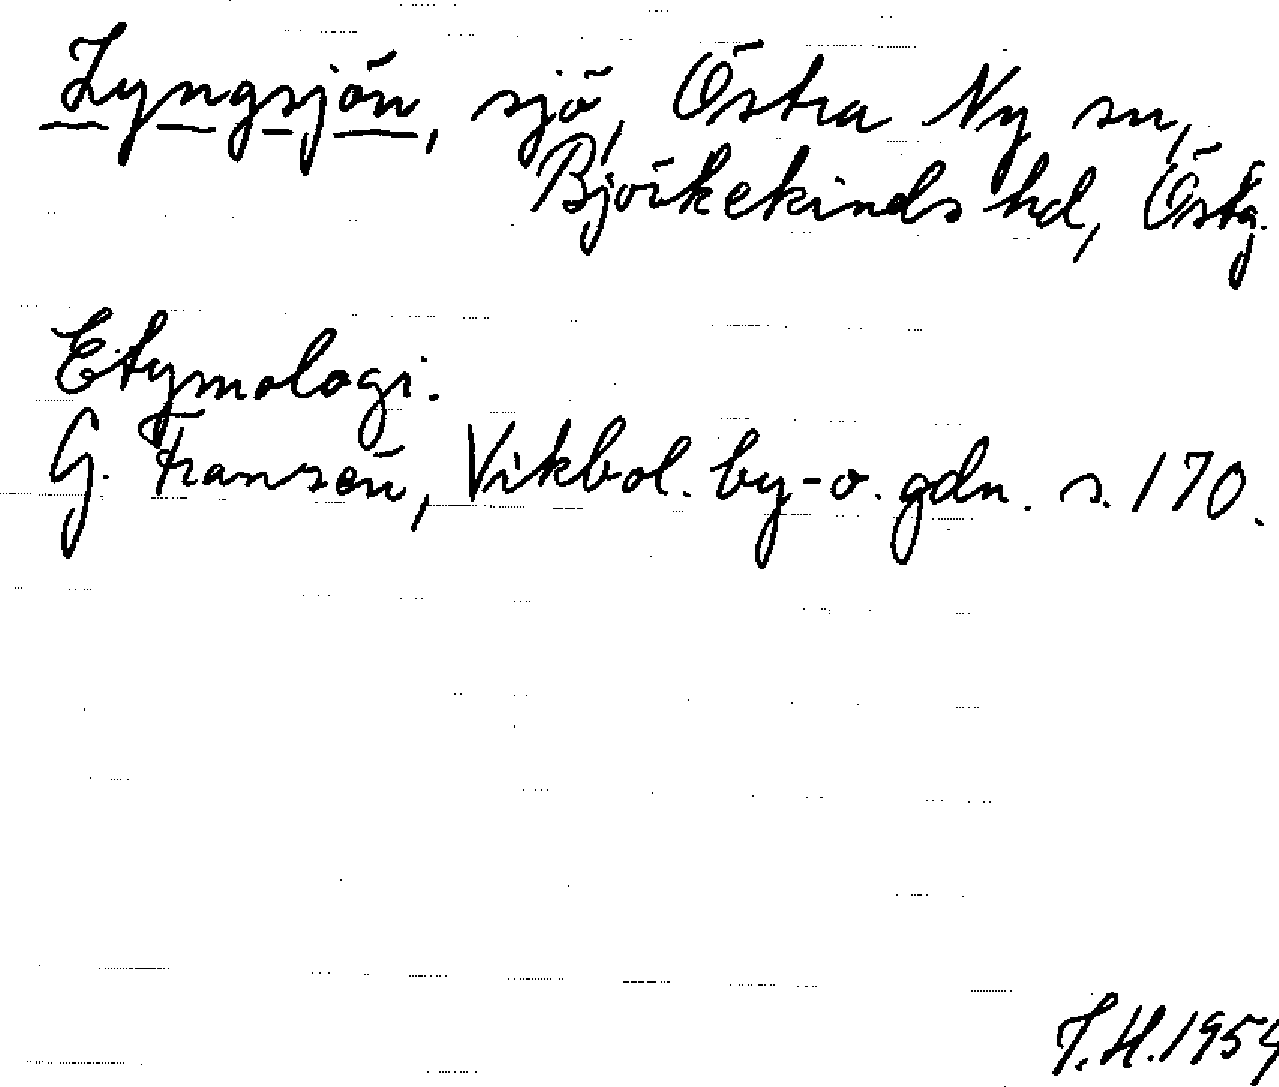 Lyngsjön, sjö, Östra Ny sn,
Björkekinds hd, Östg.
Etymologi.
G. Fransén, Vikbol. by- o. gdn. s. 170.
T.H. 1954